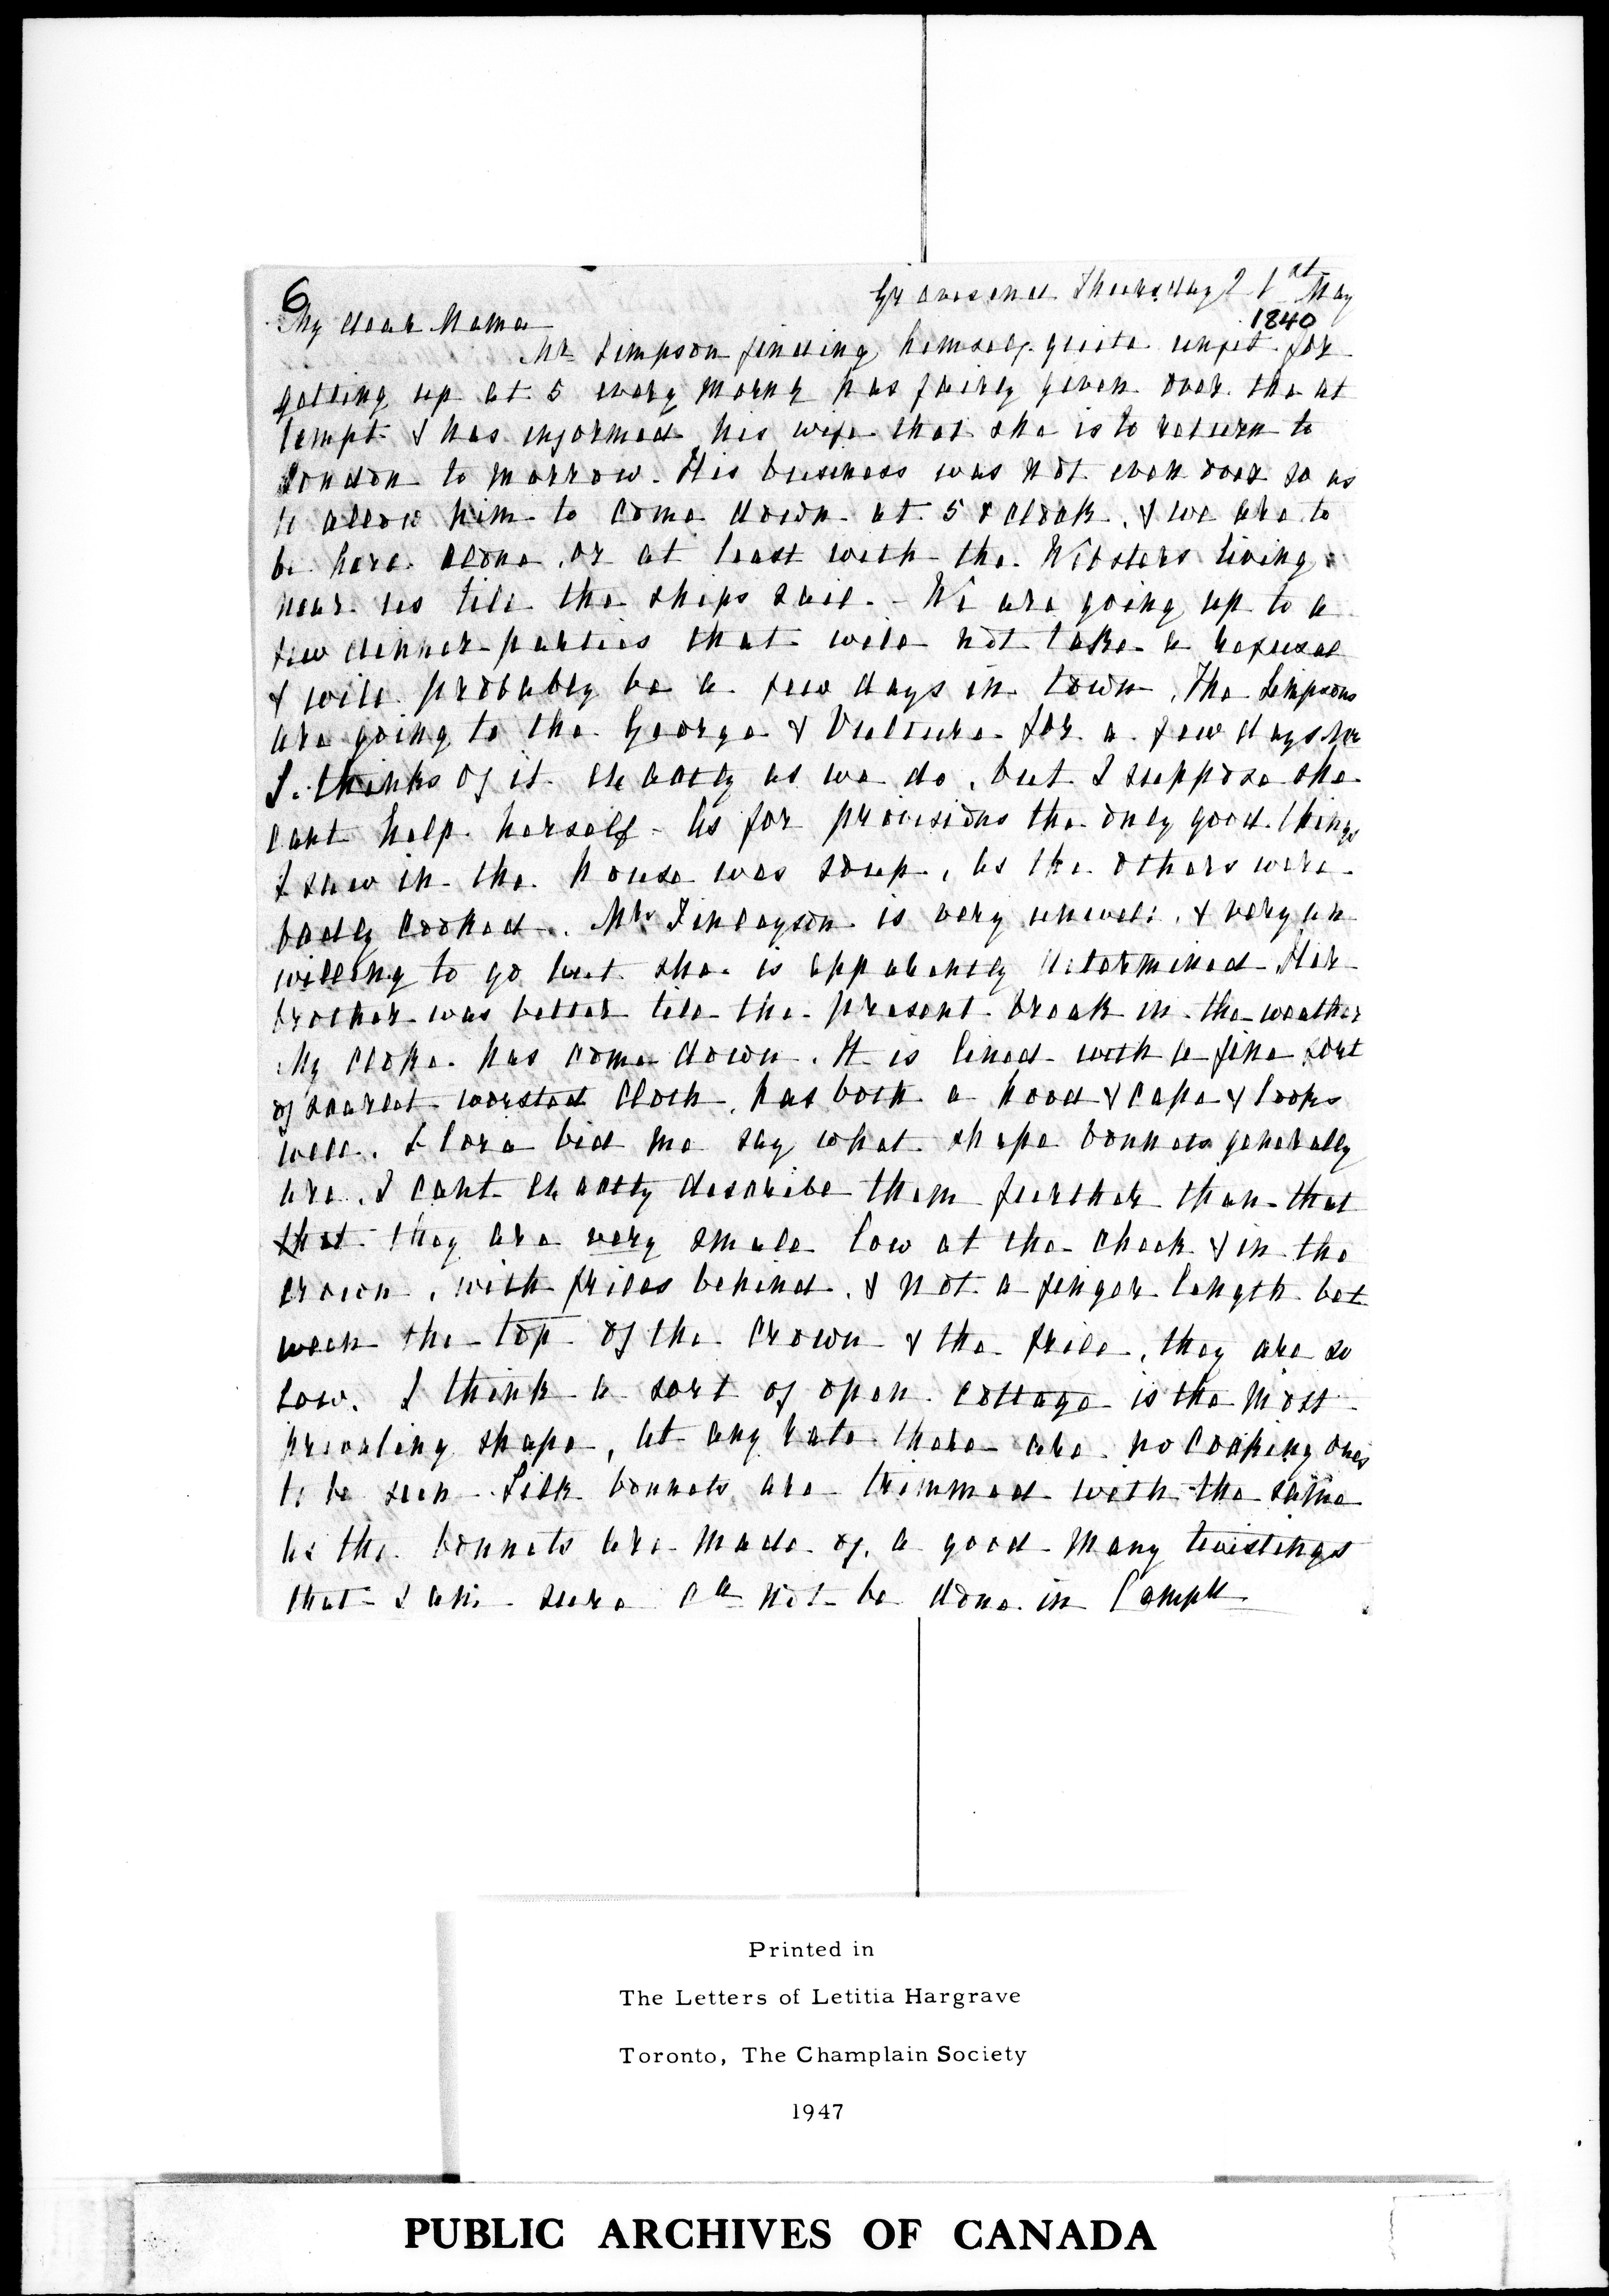 6
Gravesend Thursday 21st May
1840
My dear Mama
Mr Simpson finding himself quite unfit for
getting up at 5 every morng has fairly given over the at
tempt & has informed his wife that she is to return to
London to morrow. His business was not even over so as
to allow him to come down at 5 o clock, & we are to
be here alone, or at least with the Websters living
near us till the ships sail. - We are going up to a
few dinner parties that will not take a refusal
& will probably be a few days in town, The Simpsons
are going to the George & Vulture for a few days Mr
S. thinks of it exactly as we do, but I suppose she
cant help herself - As for provisions the only good things
I saw in the house was soup, as the others were
badly cooked. Mrs Finlayson is very unwell, & very un
willing to go but she is apparently determined. Her
brother was better till the present break in the weather
My cloke has come down. It is lined with a fine sort
of scarlet worsted cloth, has both a hood & cape & looks
well. Flora bid me say what shape bonnets generally
are. I cant exactly describe them further than that
that they are very small low at the cheek & in the
crown, with frills behind, & not a finger length bet
ween the top of the crown & the frill, they are so
low. I think a sort of open cottage is the most
prevailing shape, at any rate there are no cocking ones
to be seen. Silk bonnets are trimmed with the same
as the bonnets are made of, a good many twistings
that I am sure cd not be done in Campn
Printed in
The Letters of Letitia Hargrave
Toronto, The Champlain Society
1947
PUBLIC ARCHIVES OF CANADA